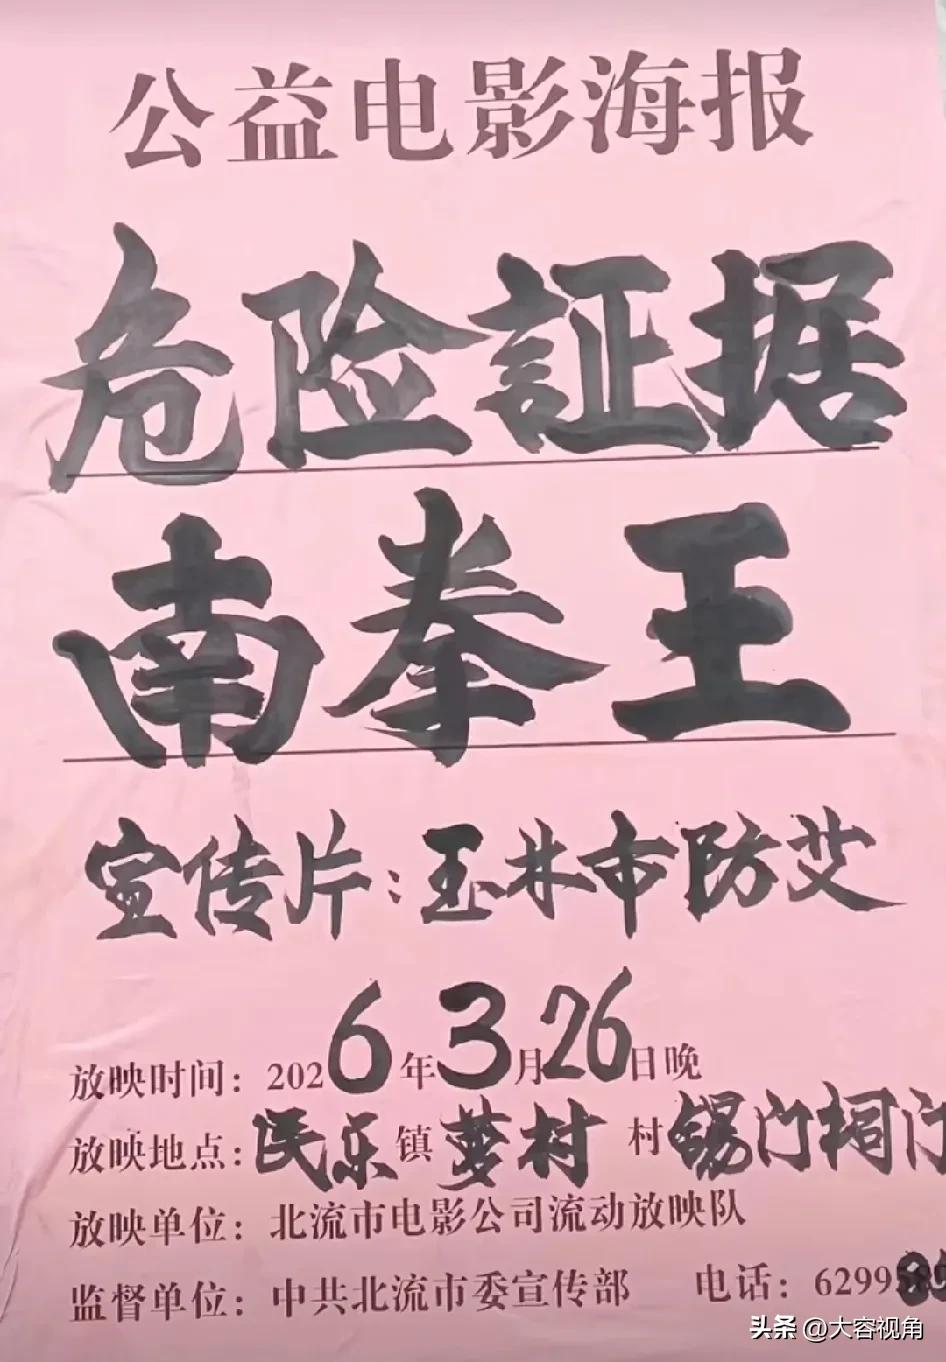 公益电影海报
危险証据
南拳王
宣传片：玉林市防艾
放映时间：2026年3月26日晚
放映地点：民乐镇萝村村锡门祠门
放映单位：北流市电影公司流动放映队
监督单位：中共北流市委宣传部 电话：6299
头条 @大容视角